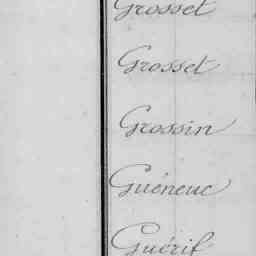 Grosset
Grosset
Grossin
Guéneuc
Guérif